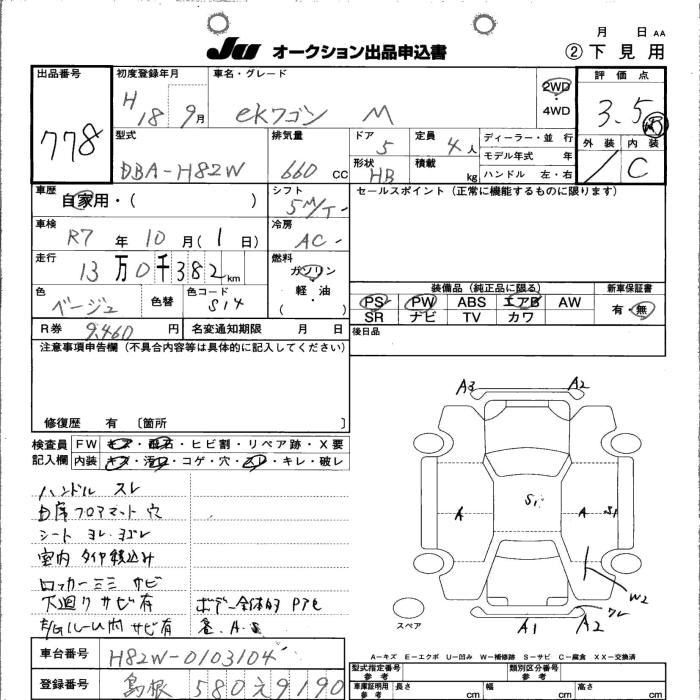 月 日 AA
JU オークション出品申込書 ②下見用
出品番号 778
初度登録年月 H18 9月
車名・グレード ekワゴン M
2WD・4WD
評価点 3.5
外装 / 内装 C
型式 DBA-H82W
排気量 660 CC
ドア 5 定員 4人
形状 HB 積載 kg
ディーラー・並行
モデル年式 年
ハンドル 左・右
車歴 自家用・( )
シフト 5M/T-
セールスポイント(正常に機能するものに限ります)
車検 R7年10月(1日)
冷房 AC-
走行 13万0千382km
燃料 ガソリン・軽油・( )
色 ベージュ 色替 色コード S14
装備品(純正品に限る) 新車保証書
PS PW ABS エアB AW 有・無
SR ナビ TV カワ
R券 9,460円 名変通知期限 月 日
後日品
注意事項申告欄(不具合内容等は具体的に記入してください)
修復歴 有 〔箇所 〕
検査員記入欄 FW キズ・飛石・ヒビ割・リペア跡・X要
内装 キズ・汚れ・コゲ・穴・スレ・キレ・破レ
ハンドル スレ
D席フロアマット 穴
シート ヨレ.ヨゴレ
室内 タイヤ積込み
ロッカーミミ サビ
下廻り サビ有 ボデー全体的
ルーム内 サビ有 A.S
A3 A2
S1
A A S1
W2
A1 A2
スペア
A-キズ E-エクボ U-凹み W-補修跡 S-サビ C-腐食 XX-交換済
車台番号 H82W-0103104
登録番号 島根 580 え 9190
型式指定番号 参考 類別区分番号 参考
車庫証明用 参考 長さ cm 幅 cm 高さ cm